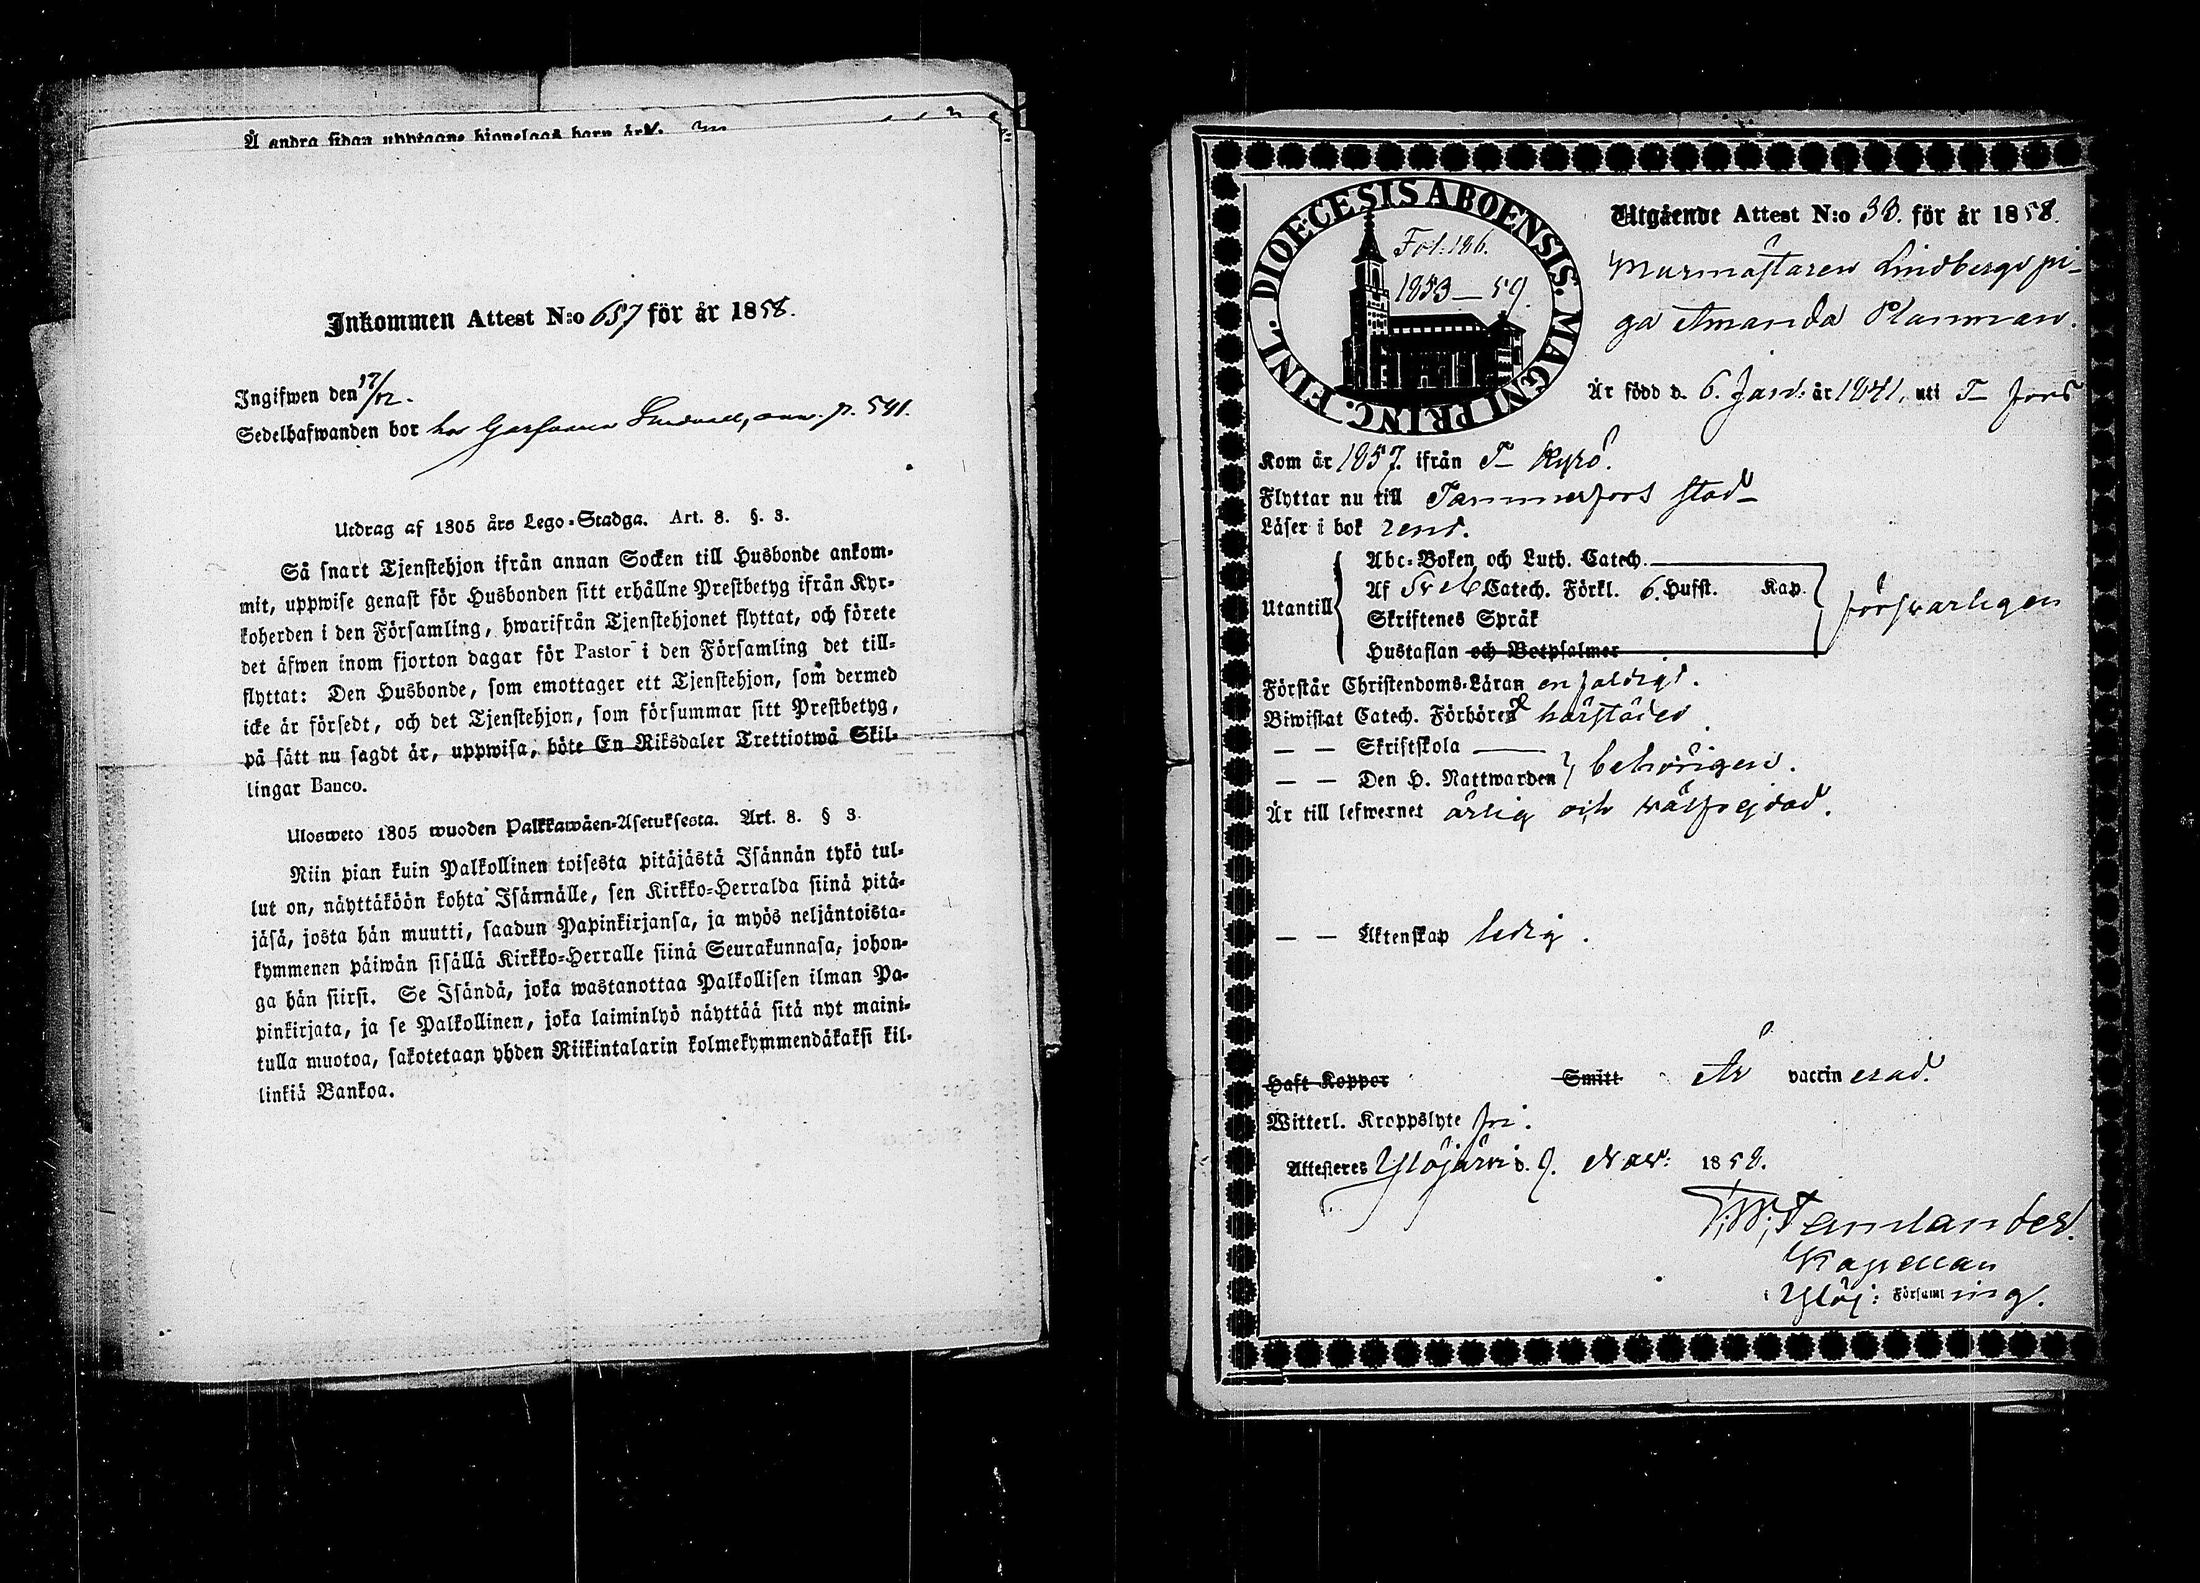 Å andra sidan upptagne hjonelags barn äro:
Inkommen Attest N:o 657 för år 1858.
Ingifwen den 17/12.
Sedelhafwanden bor hos Garfvaren p. 541.
Utdrag af 1805 års Lego-Stadga. Art. 8. §. 3.
Så snart Tjenstehjon ifrån annan Socken till Husbonde ankom-
mit, uppwise genast för Husbonden sitt erhållne Prestbetyg ifrån Kyr-
koherden i den Församling, hwarifrån Tjenstehjonet flyttat, och förete
det äfwen inom fjorton dagar för Pastor i den Församling det till-
flyttat: Den Husbonde, som emottager ett Tjenstehjon, som dermed
icke är försedt, och det Tjenstehjon, som försummar sitt Prestbetyg,
på sätt nu sagdt är, uppwisa, böte En Riksdaler Trettiotwå Skil-
lingar Banco.
Ulosweto 1805 wuoden Palkkawäen-Asetuksesta. Art. 8. § 3.
Niin pian kuin Palkollinen toisesta pitäjästä Isännän tykö tul-
lut on, näyttäköön kohta Isännälle, sen Kirkko-Herralda siinä pitä-
jäsä, josta hän muutti, saadun Papinkirjansa, ja myös neljäntoista-
kymmenen päiwän sisällä Kirkko-Herralle siinä Seurakunnasa, johon-
ga hän siirsi. Se Isändä, joka wastanottaa Palkollisen ilman Pa-
pinkirjata, ja se Palkollinen, joka laiminlyö näyttää sitä nyt maini-
tulla muotoa, sakotetaan yhden Riikintalarin kolmekymmendäkaksi kil-
linkiä Bankoa.
DIOECESIS ABOENSIS. MAGNI PRINC. FINL.
Fol: 186.
1853–59.
Utgående Attest N:o 33. för år 1858.
Murmästaren Lindbergs pi-
ga Amanda Planman.
Är född d. 6. Jan: år 1841, uti T-fors
Kom år 1857. ifrån T-Kyrö.
Flyttar nu till Tammerfors stad-
Läser i bok rent.
Utantill
Abc-Boken och Luth. Catech.
Af Sveb Catech. Förkl. 6. Hufst. Kap.
Skriftenes Språk
Hustaflan och Botpsalmer
försvarligen
Förstår Christendoms-Läran enfaldigt.
Biwistat Catech. Förhören härstädes
— — Skriftskola
— — Den H. Nattwarden behörigen.
Är till lefwernet ärlig och välfrejdad.
— — Äktenskap ledig.
Haft Koppor Smitt Är vaccinerad.
Witterl. Kroppslyte fri.
Attesteres Ylöjärvi d. 9. Nov: 1858.
T. W. Tamlander.
Kapellan
i Ylöj: Församling.